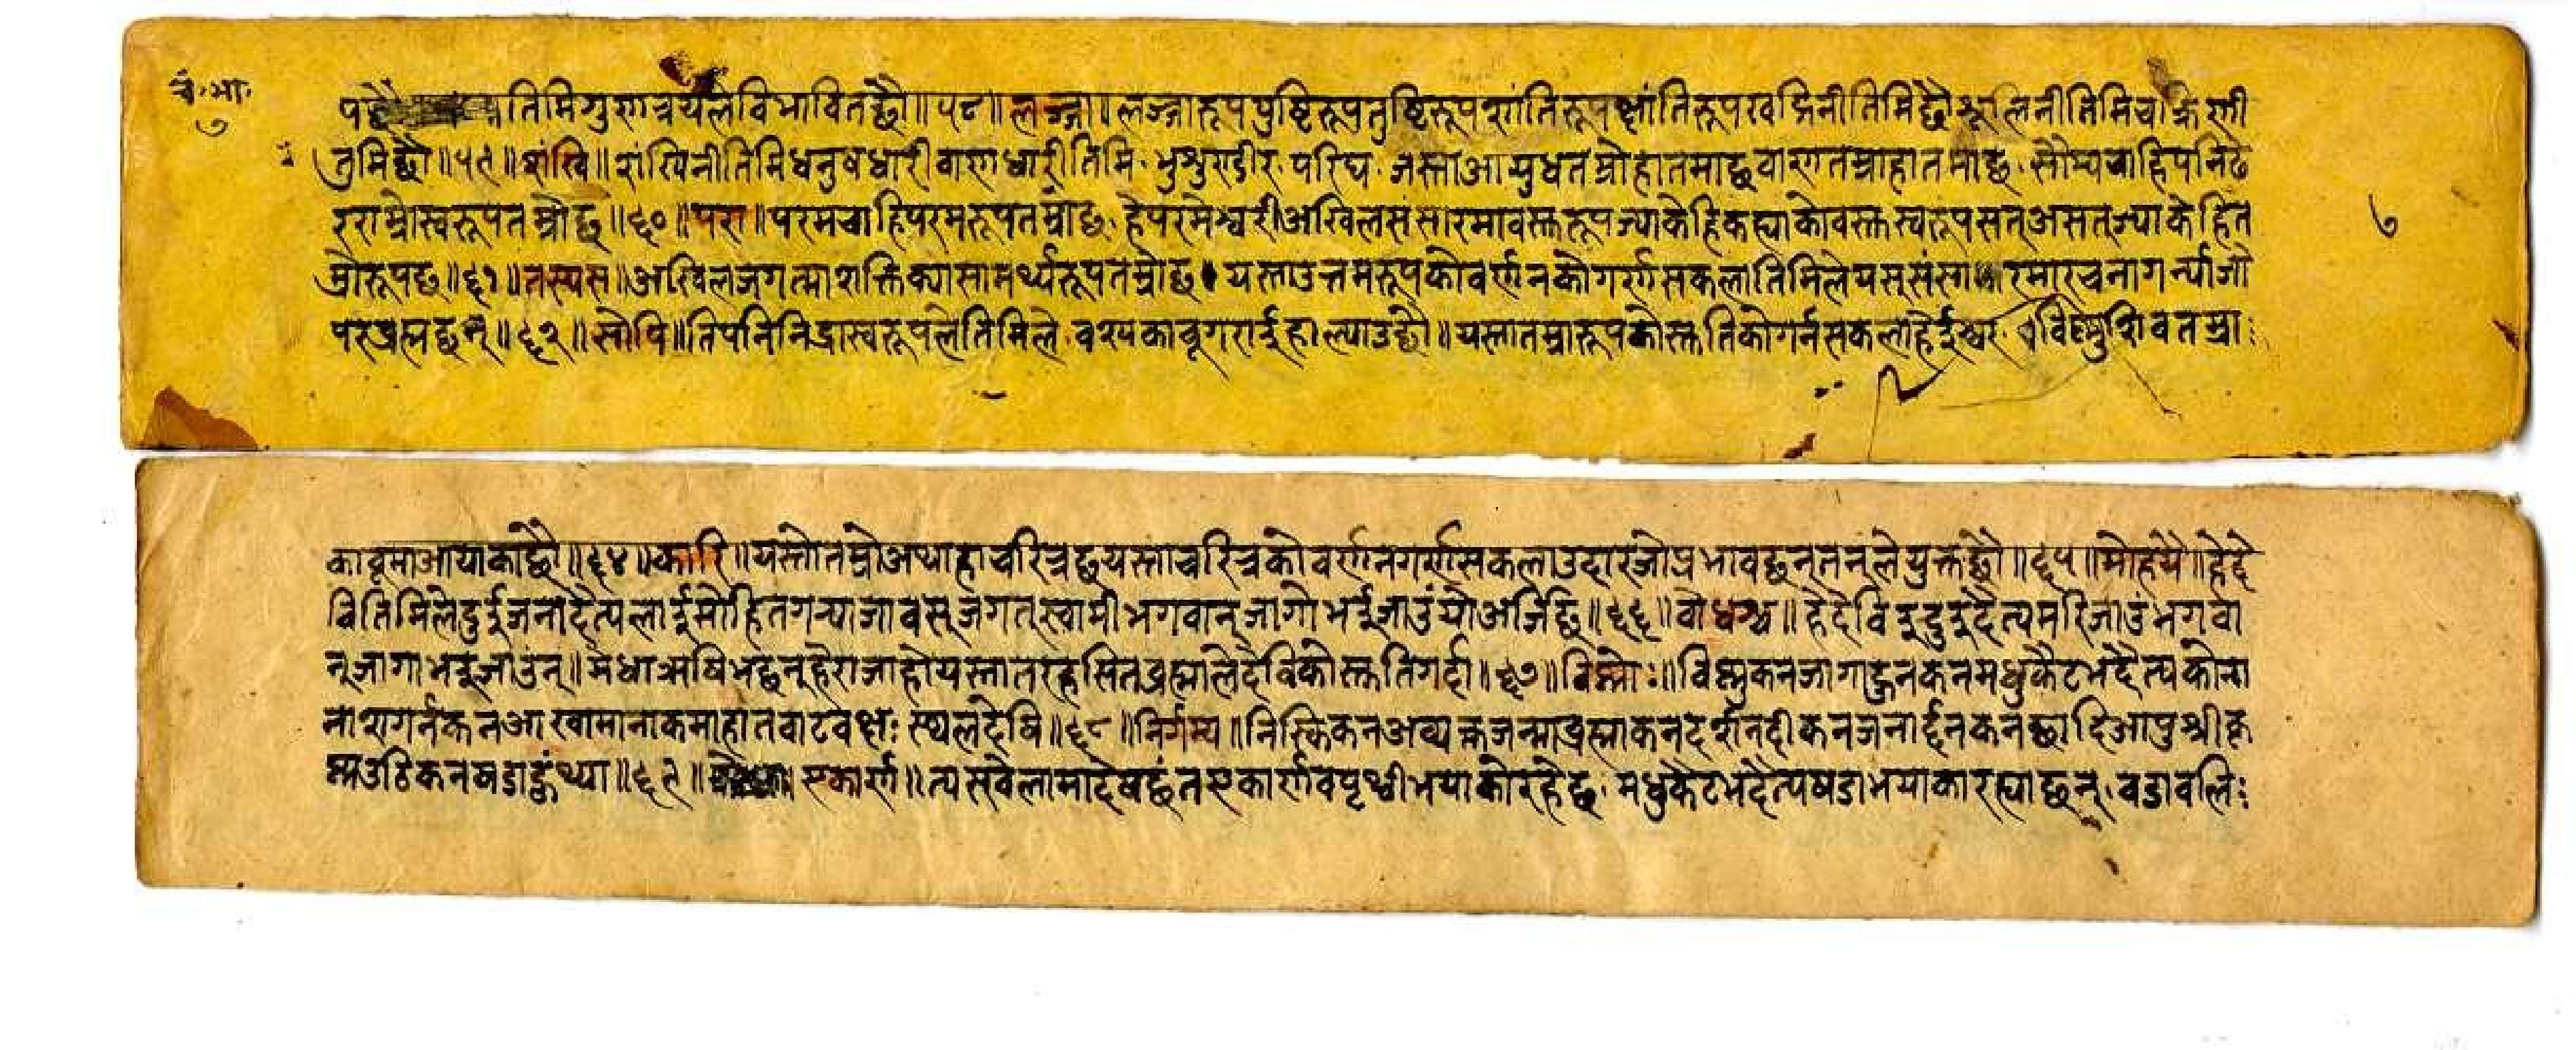 चं.भा.
७
प तिमिगुणत्रयले विभावितछौ॥५८॥लज्जा॥लज्जारूपपुष्टिरूपतुष्टिरूपशांतिरूपक्षांतिरूपखड्गिनीतिमिछौशूलिनीतिमिचाक्रिणी
तिमिछौ॥५९॥शंखि॥शंखिनीतिमिधनुषधारीवाणधारीतिमि भुशुण्डीर परिघ जस्ताआयुधतम्रोहातमाछवाणतम्राहातमाछ सौम्यचाहिपनि
म्रोस्वरूपतम्रौछ॥६०॥परा॥परमचाहिपरमरूपतम्रोछ हेपरमेश्वरीअखिलसंसारमावस्तरूपज्याकेहिकह्याकोवस्तस्वरूपसत्असत्ज्याकेहित
७
म्रोरूपछ॥६१॥तस्यस॥अखिलजगत्माशक्तिक्यासामर्थ्यरूपतम्रोछ यस्ताउत्तमरूपकोवर्णनकोगर्णसकलातिमिलेयस् मारचनागर्न्याजो
परब्रह्मछन्॥६२॥सोपि॥तिपनिनिद्रास्वरूपलेतिमिले वश्यकाबूगराईहाल्याउछौ॥यस्तातम्रारूपकोस्तुतिकोगर्नसकलाहेईश्वर विष्णुशिवतम्रा
काबूमाआयाकाछौ॥६४॥कारि॥यस्तोतम्रोअथाहाचरित्रछयस्ताचरित्रकोवर्णनगर्णसकलाउहारजोप्रभावछन्तनलेयुक्तछौ॥६५॥मोहयै॥हेदे
वितिमिलेदुईजनादैत्यलाईमोहितगर्‍याजावस्जगत्स्वामीभगवान्जागाभईजाउंयोअर्जिछ॥६६॥वोधश्च॥हेदेविदुदुइदैत्यमरिजाउंभगवा
न्जागाभईजाउन्॥मेधाऋषिभन्छन्हेराजाहोयस्तातरहसितब्रह्मालेदेविकोस्तुतिगर्दा॥६७॥विष्णोः॥विष्णुकनजागाहुनकनमधुकैटभदैत्यकोना
नाशगर्नकनआखामानाकमाहातबाटवक्षःस्थलदेषि॥६८॥निर्गम्य॥निस्किकनअव्यक्तजन्माब्रह्माकनदर्शनदीकनजनार्दनकनछाडिआपुश्रीकृ
ष्णउठिकनषडाहुंथ्या॥६९॥ एकार्ण॥त्यसवेलामादेषछंतएकार्णवपृथ्वीभयाकोरहेछ मधुकैटभदैत्यषडाभयाकारह्याछन् वडावलि